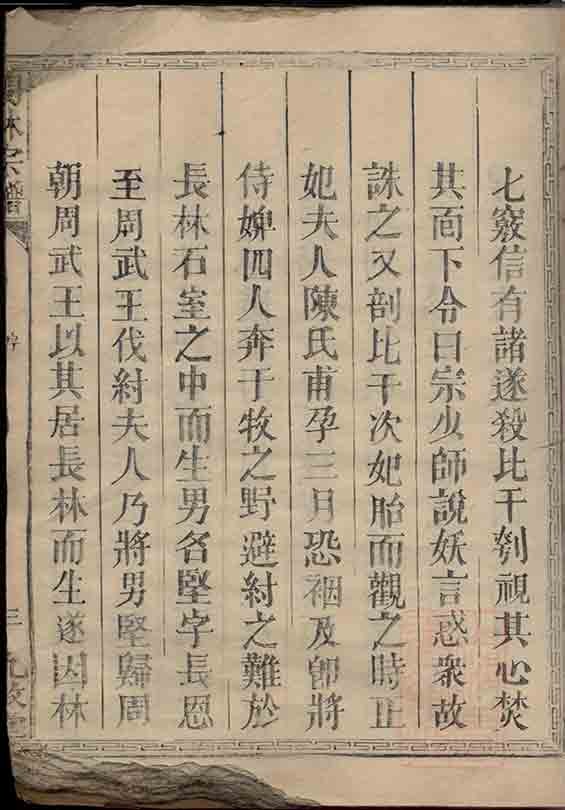 七竅信有諸遂殺比干刳視其心焚
其面下令曰宗少師說妖言惑衆故
誅之又剖比干次妃胎而觀之時正
妃夫人陳氏甫孕三月恐禍及卽將
侍婢四人奔于牧之野避紂之難於
長林石室之中而生男名堅字長恩
至周武王伐紂夫人乃將男堅歸周
朝周武王以其居長林而生遂因林
林宗譜
三